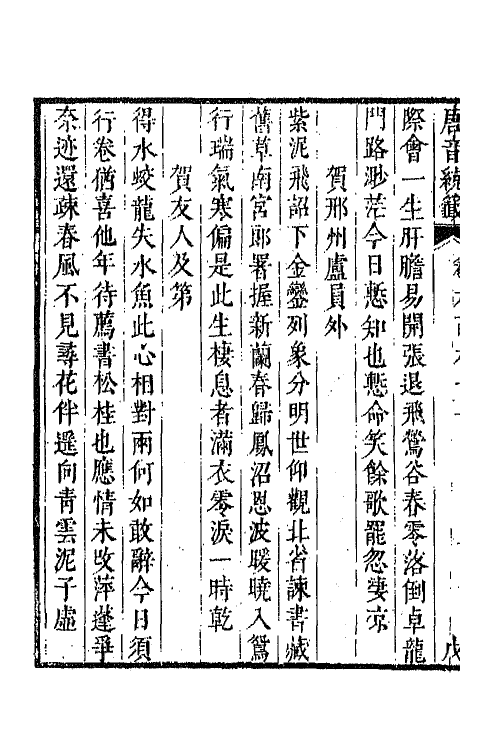 唐音統籤
際會一生肝膽易開張退飛鶯谷春零落倒卓龍
門路渺茫今日慙知也慙命笑餘歌罷忽淒凉
賀邢州盧員外
紫泥飛詔下金鑾列象分明世仰觀北省諫書藏
舊草南宮郎署握新蘭春歸鳳沼恩波暖曉入鴛
行瑞氣寒偏是此生棲息者滿衣零淚一時乾
賀友人及第
得水蛟龍失水魚此心相對兩何如敢辭今日須
行卷猶喜他年待薦書松桂也應情未攺萍蓬爭
奈迹還疎春風不見尋花伴遥向青雲泥子虛